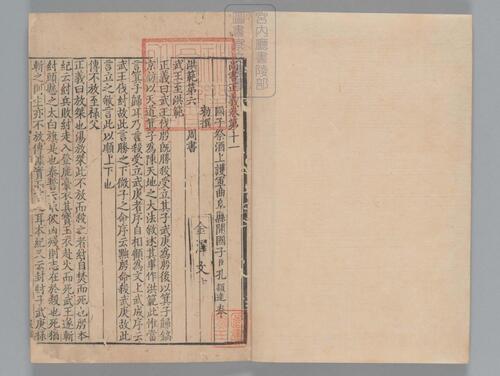 宮内廳書陵部
圖書寮文庫
尚書正義卷第十一
國子祭酒上護軍曲阜縣開國子臣孔穎達奉
勑撰
洪範第六
周書
金澤文
武王至洪範
正義曰武王伐殷旣勝殺受立其子武庚爲殷後以箕子歸鎬
京訪以天道箕子爲陳天地之大法敘述其事作洪範此惟當
言箕子歸耳乃言殺受立武庚者序自相顧爲文上武成序云
武王伐紂故此言勝之下微子之命序云黜殷命殺武庚故此
言立之敘言此以順上下也
傳不放至祿父
正義曰放桀也湯放桀此不放而殺之者紂自焚而死也殷本
紀云紂兵敗紂走入登鹿臺衣其寶玉衣赴火而死武王遂斬
紂頭懸之太白旗是也泰誓云取彼凶殘則志在於殺也死猶
斬之則生亦不放傳據實而言之耳本紀又云封紂子武庚祿